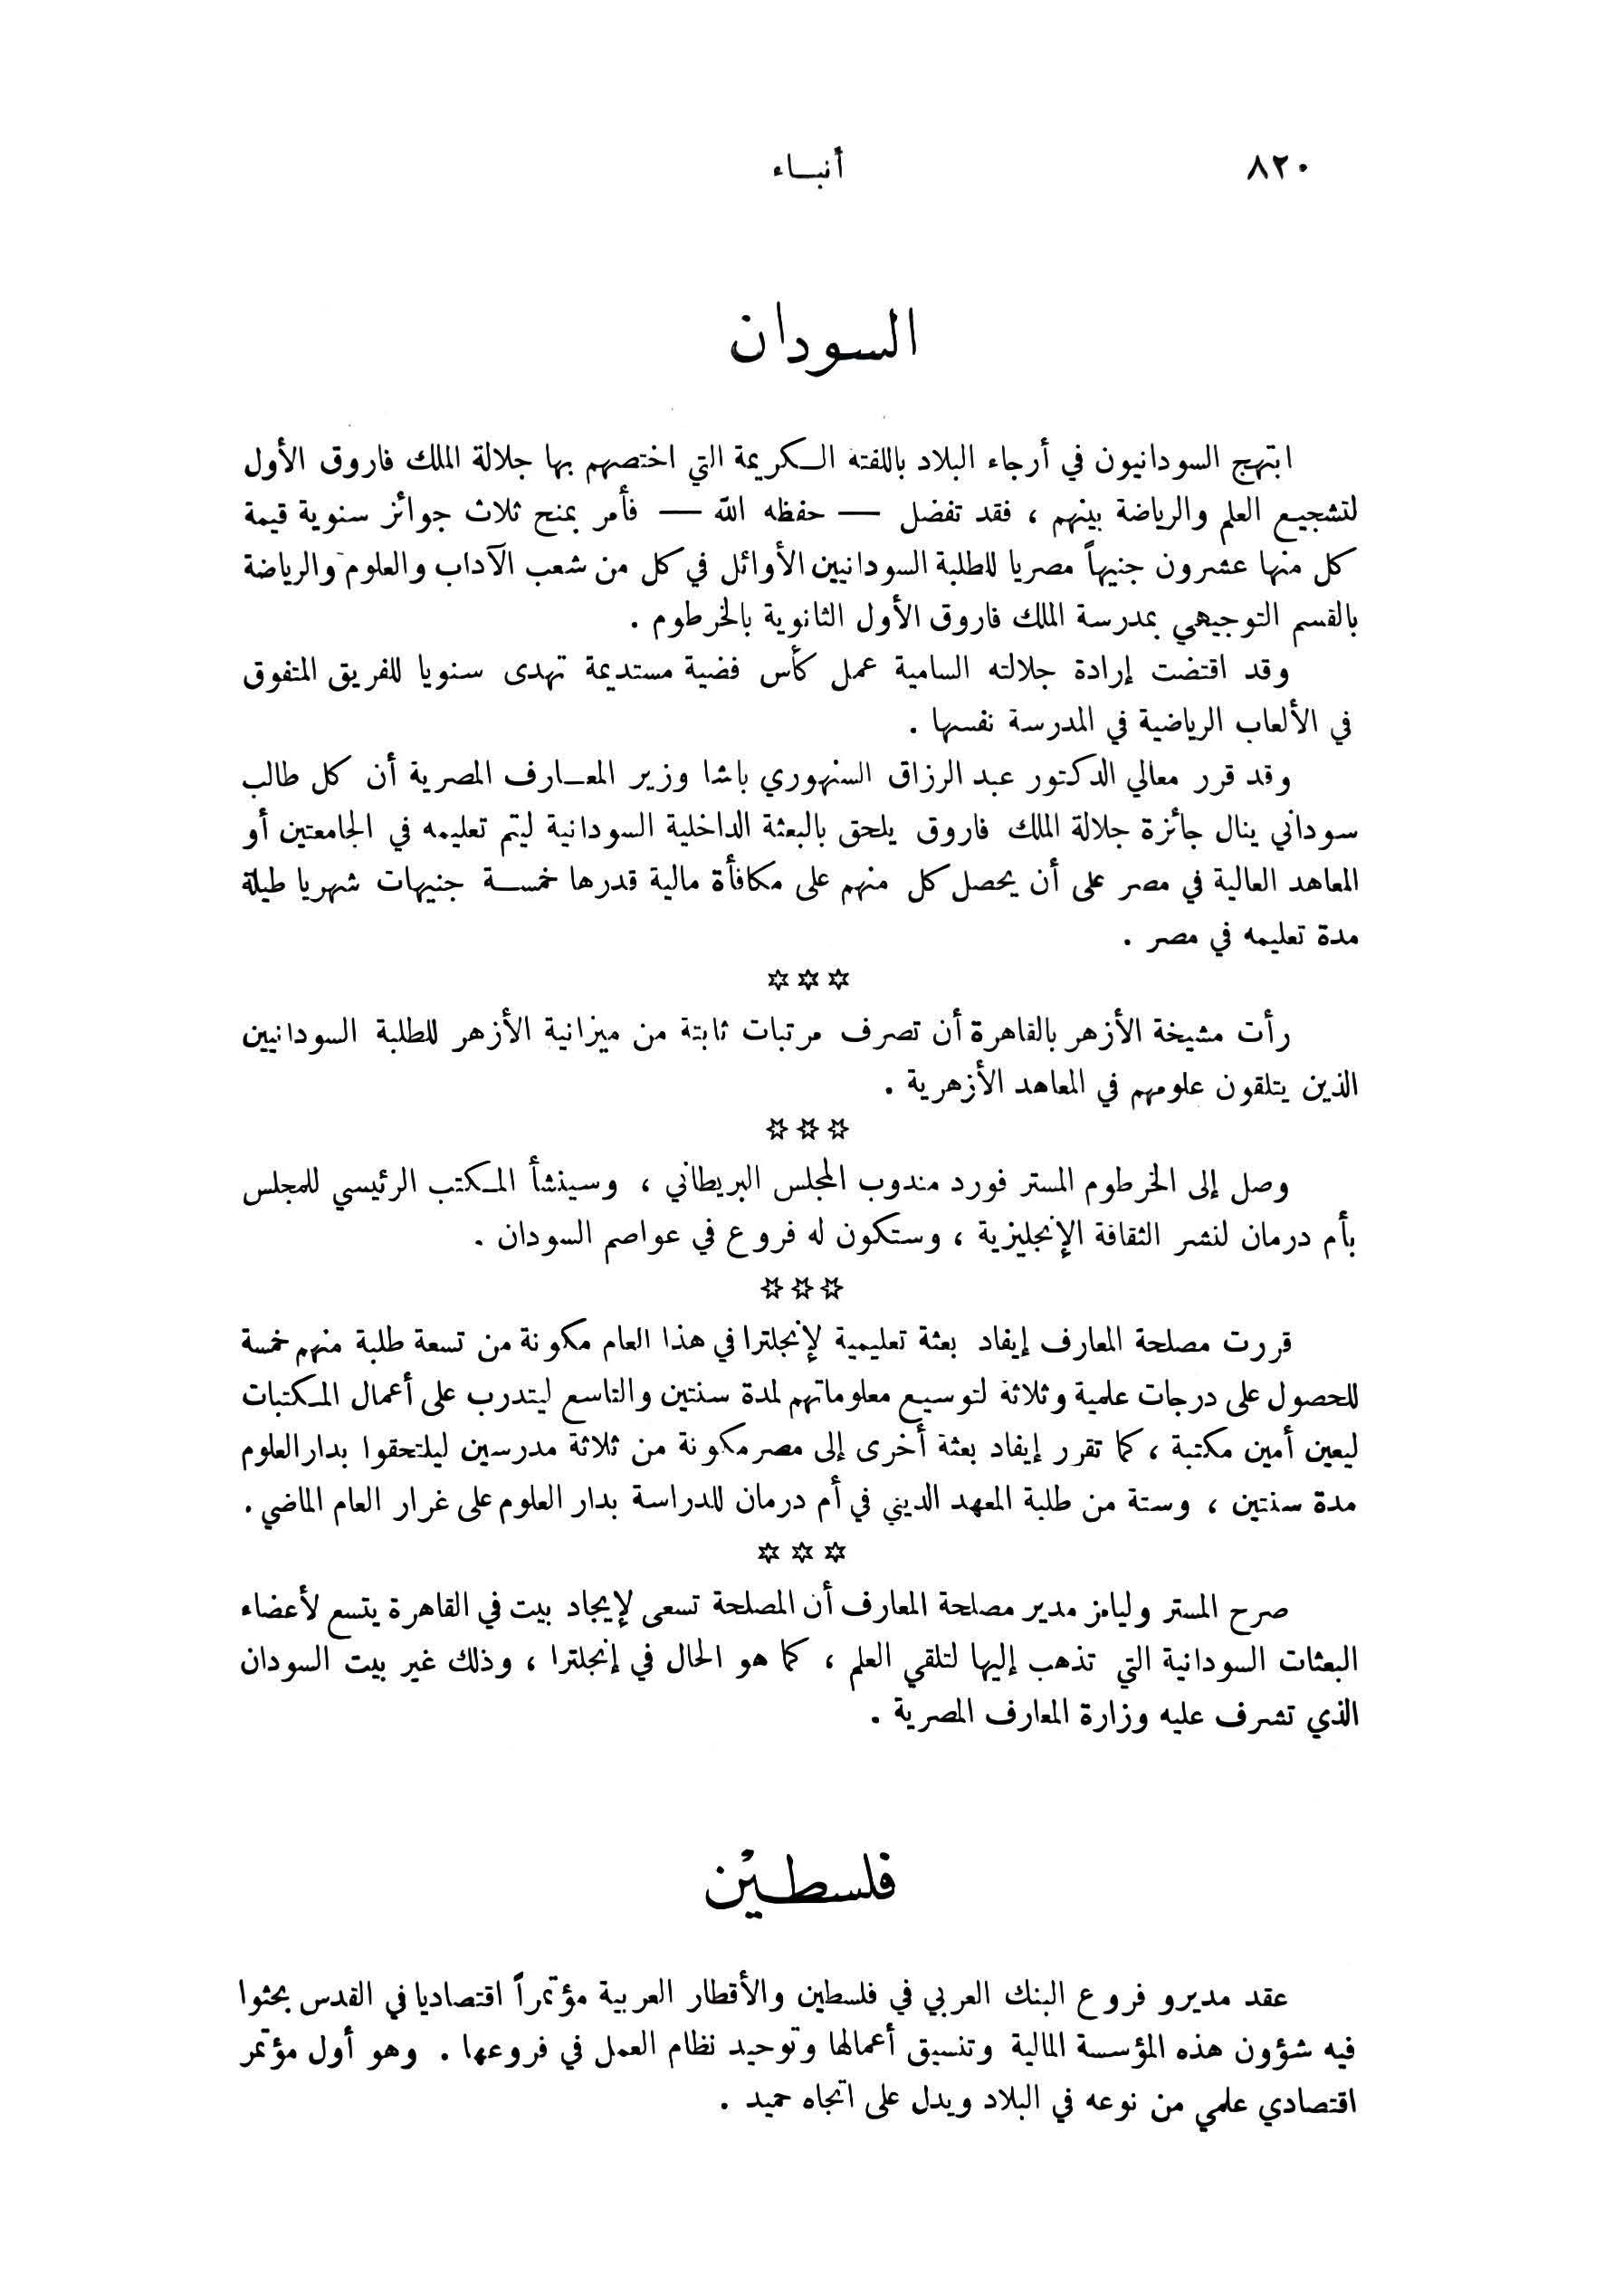 ٨٢٠
أنباء
السودان
ابتهج السودانيون في أرجاء البلاد باللفتة الكريمة التي اختصهم بها جلالة الملك فاروق الأول
لتشجيع العلم والرياضة بينهم ، فقد تفضل — حفظه الله — فأمر بمنح ثلاث جوائز سنوية قيمة
كل منها عشرون جنيهاً مصريا للطلبة السودانيين الأوائل في كل من شعب الآداب والعلوم والرياضة
بالقسم التوجيهي بمدرسة الملك فاروق الأول الثانوية بالخرطوم .
وقد اقتضت إرادة جلالته السامية عمل كأس فضية مستديمة تهدى سنويا للفريق المتفوق
في الألعاب الرياضية في المدرسة نفسها .
وقد قرر معالي الدكتور عبد الرزاق السنهوري باشا وزير المعارف المصرية أن كل طالب
سوداني ينال جائزة جلالة الملك فاروق يلحق بالبعثة الداخلية السودانية ليتم تعليمه في الجامعتين أو
المعاهد العالية في مصر على أن يحصل كل منهم على مكافأة مالية قدرها خمسة جنيهات شهريا طيلة
مدة تعليمه في مصر .
✡ ✡ ✡
رأت مشيخة الأزهر بالقاهرة أن تصرف مرتبات ثابتة من ميزانية الأزهر للطلبة السودانيين
الذين يتلقون علومهم في المعاهد الأزهرية .
✡ ✡ ✡
وصل إلى الخرطوم المستر فورد مندوب المجلس البريطاني ، وسينشأ المكتب الرئيسي للمجلس
بأم درمان لنشر الثقافة الإنجليزية ، وستكون له فروع في عواصم السودان .
✡ ✡ ✡
قررت مصلحة المعارف إيفاد بعثة تعليمية لإنجلترا في هذا العام مكونة من تسعة طلبة منهم خمسة
للحصول على درجات علمية وثلاثة لتوسيع معلوماتهم لمدة سنتين والتاسع ليتدرب على أعمال المكتبات
ليعين أمين مكتبة ، كما تقرر إيفاد بعثة أخرى إلى مصر مكونة من ثلاثة مدرسين ليلتحقوا بدار العلوم
مدة سنتين ، وستة من طلبة المعهد الديني في أم درمان للدراسة بدار العلوم على غرار العام الماضي .
✡ ✡ ✡
صرح المستر وليامز مدير مصلحة المعارف أن المصلحة تسعى لإيجاد بيت في القاهرة يتسع لأعضاء
البعثات السودانية التي تذهب إليها لتلقي العلم ، كما هو الحال في إنجلترا ، وذلك غير بيت السودان
الذي تشرف عليه وزارة المعارف المصرية .
فلسطين
عقد مديرو فروع البنك العربي في فلسطين والأقطار العربية مؤتمراً اقتصاديا في القدس بحثوا
فيه شؤون هذه المؤسسة المالية وتنسيق أعمالها وتوحيد نظام العمل في فروعها . وهو أول مؤتمر
اقتصادي علمي من نوعه في البلاد ويدل على اتجاه حميد .